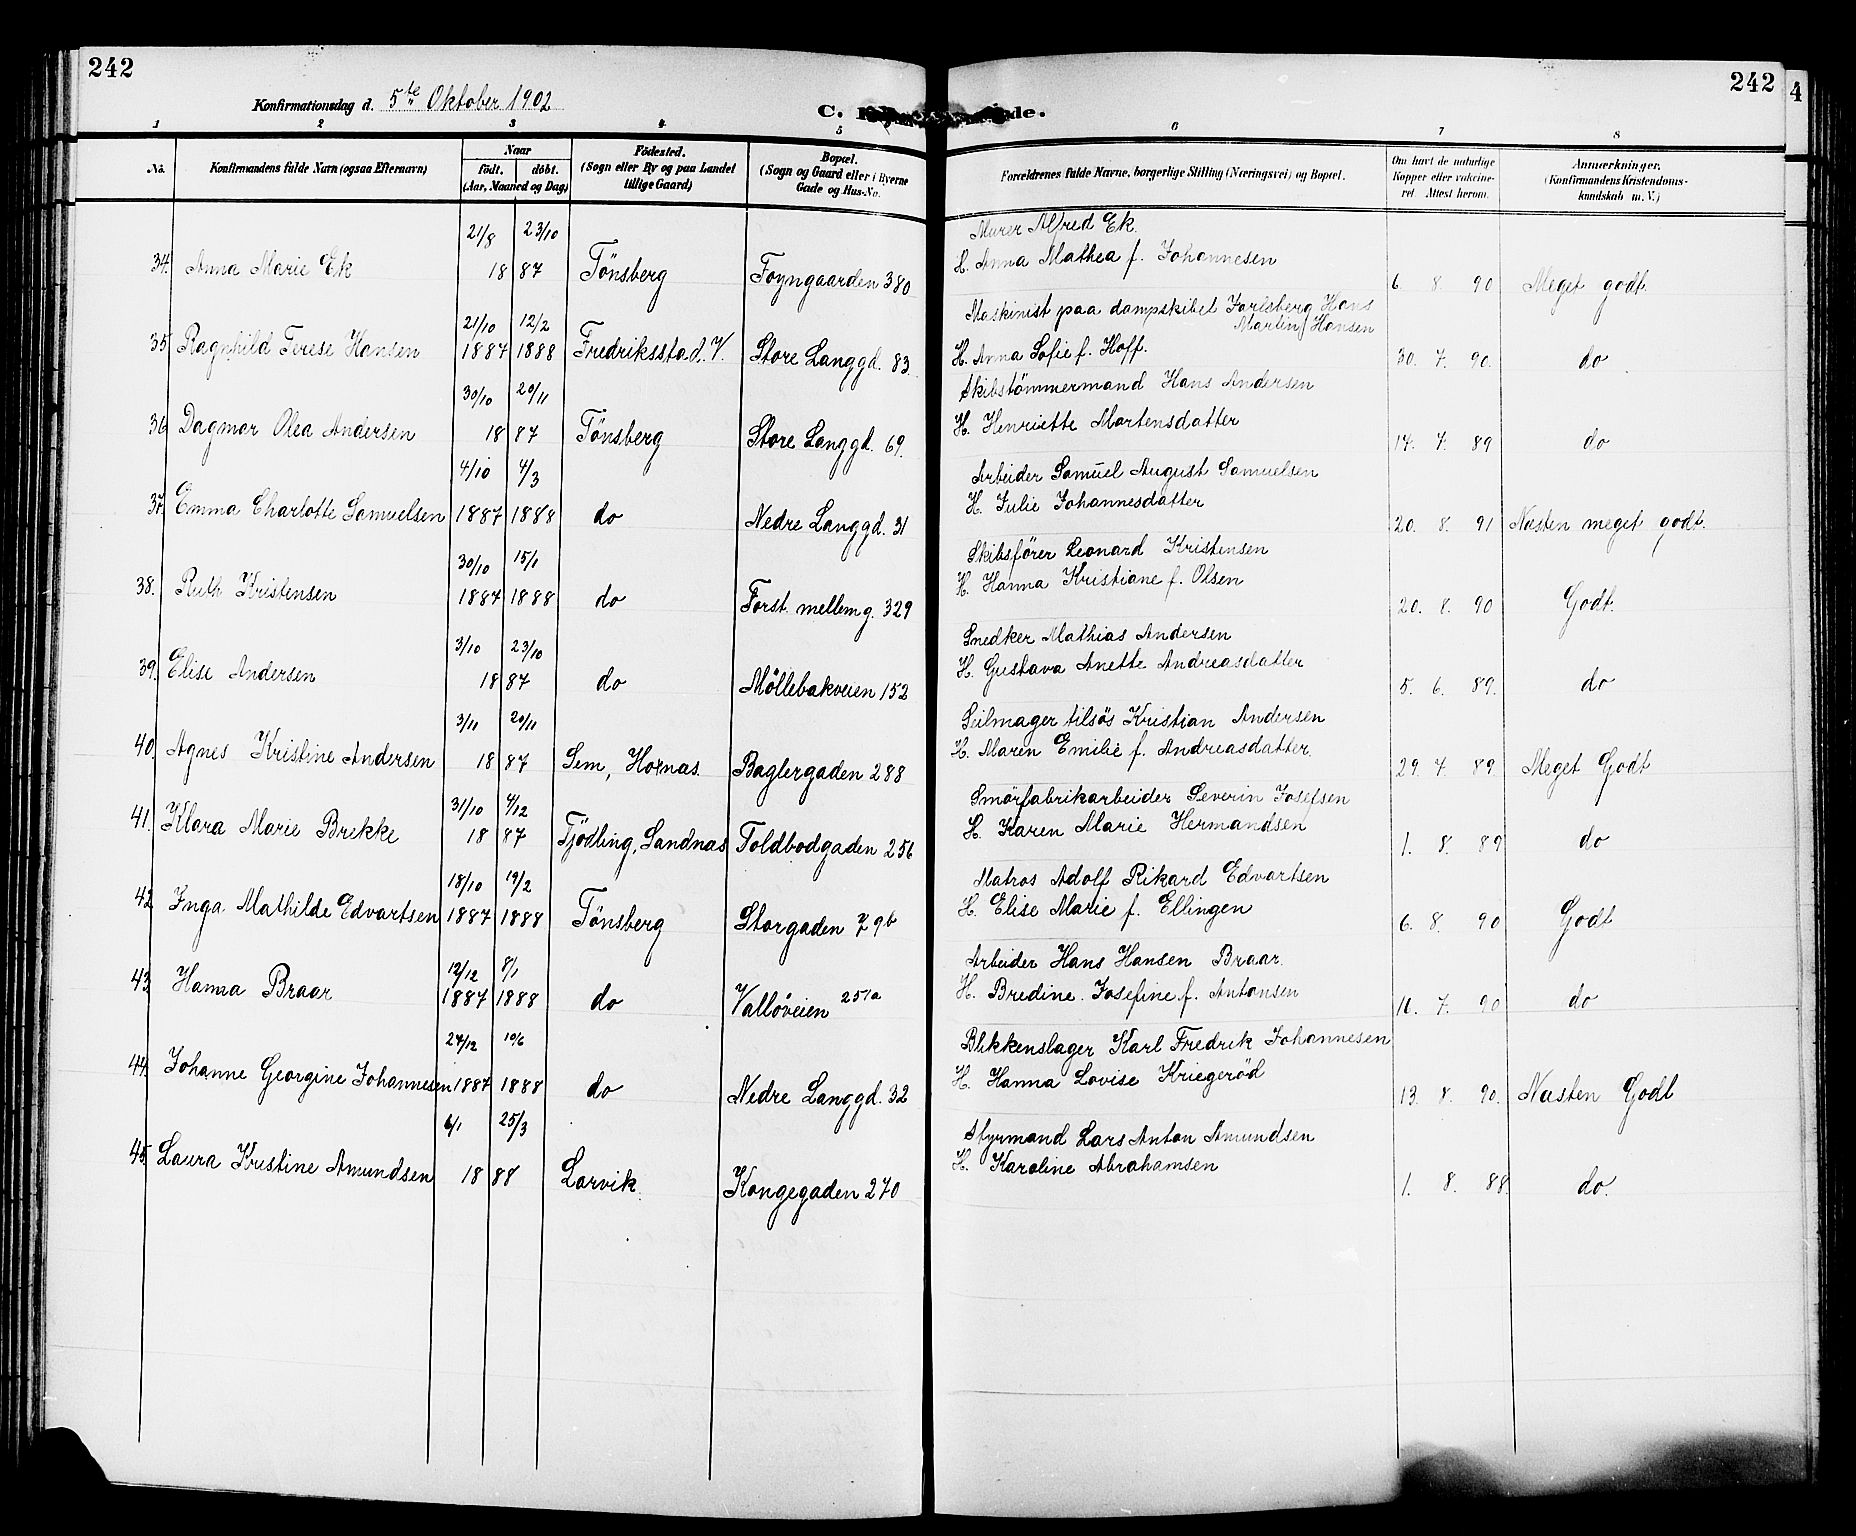 242
242
4
Konfirmationsdag d. 5te Oktober 1902
C.
de.
1 2 3 4 5 6 7 8
No.
Konfirmandens fulde Navn (ogsaa Efternavn)
Naar
födt. döbt.
(Aar, Maaned og Dag)
Födested.
(Sogn eller By og paa Landet
tillige Gaard)
Bopæl.
(Sogn og Gaard eller i Byerne
Gade og Hus-No.
Forældrenes fulde Navne, borgerlige Stilling (Næringsvei) og Bopæl.
Om havt de naturlige
Kopper eller vakcine-
ret. Attest herom.
Anmærkninger.
(Konfirmandens Kristendoms-
kundskab m. V.)
21/8 23/10 Murer Alfred Ek.
34. Anna Marie Ek 18 87 Tönsberg Foyngaarden 380 H. Anna Mathea f. Johannesen 6. 8. 90 Meget godt
21/10 12/2 Maskinist paa dampskibet Jarlsberg Hans
Martin Hansen
35. Ragnhild Terese Hansen 1887 1888 Fredriksstad. V. Store Langgd. 83. H. Anna Sofie f. Hoff. 30. 7. 90. do
30/10 20/11 Skibstömmermand Hans Andersen
36. Dagmar Olea Andersen 18 87 Tönsberg Store Langgd. 69. H. Henriette Martensdatter 14. 7. 89 do
4/10 4/3 Arbeider Samuel August Samuelsen
37. Emma Charlotte Samuelsen 1887 1888 do Nedre Langgd. 31 H. Julie Johannesdatter 20. 8. 91 Næsten meget godt.
30/10 15/1 Skibsförer Leonard Kristensen
38. Ruth Kristensen 1887 1888 do Forst. mellemg. 329 H. Hanna Kristiane f. Olsen 20. 8. 90 Godt.
3/10 23/10 Snedker Mathias Andersen
39. Elise Andersen 18 87 do Möllebakveien 152 H. Gustava Anette Andreasdatter 5. 6. 89. do
3/11 20/11 Seilmager tilsös Kristian Andersen
40. Agnes Kristine Andersen 18 87 Sem, Hoxnas. Baglergaden 288 H. Maren Emilie f. Andreasdatter. 29. 7. 89. Meget Godt
31/10 4/12 Smörfabrikarbeider Severin Josefsen
41. Klara Marie Brekke 18 87 Tjödling, Sandnas Toldbodgaden 256 H. Karen Marie Hermandsen 1. 8. 89 do
18/10 19/2 Matros Adolf Rikard Edvartsen
42. Inga Mathilde Edvartsen 1887 1888 Tönsberg Storgaden 79b H. Elise Marie f. Ellingen 6. 8. 90 Godt
12/12 8/1 Arbeider Hans Hansen Braar.
43. Hanna Braar 1887 1888 do Vallöveien 251a H. Bredine Josefine f. Antonsen 16. 7. 90 do
27/12 10/6 Blikkenslager Karl Fredrik Johannesen
44. Johanne Georgine Johannesen 1887 1888 do Nedre Langgd. 32 H. Hanna Lovise Kriegeröd 13. 8. 90. Næsten Godt
6/1 25/3 Styrmand Lars Anton Amundsen
45. Laura Kristine Amundsen 18 88 Larvik. Kongegaden 270 H. Karoline Abrahamsen 1. 8. 88. do.